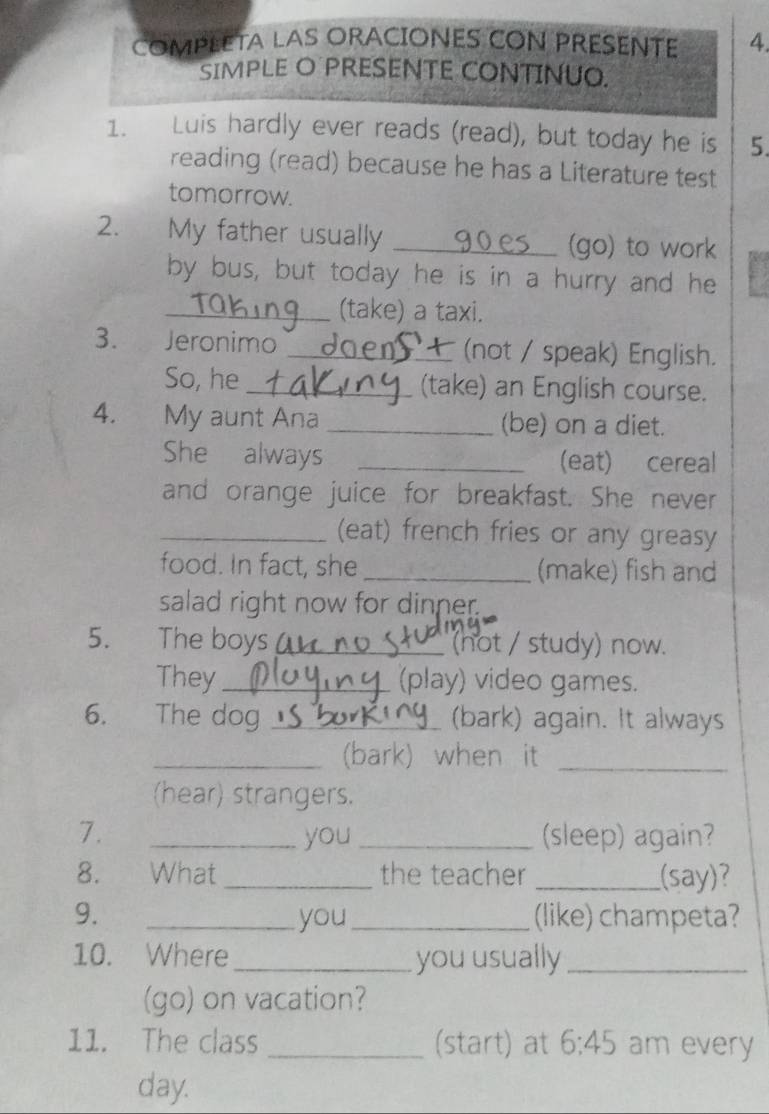 COMPLETA LAS ORACIONES CON PRESENTE
SIMPLE O PRESENTE CONTINUO.
4.
5.
1. Luis hardly ever reads (read), but today he is
reading (read) because he has a Literature test
tomorrow.
2. My father usually goes (go) to work
by bus, but today he is in a hurry and he
Taking (take) a taxi.
3. Jeronimo doens't (not / speak) English.
So, he taking (take) an English course.
4. My aunt Ana ____________ (be) on a diet.
She always ____________ (eat) cereal
and orange juice for breakfast. She never
____________ (eat) french fries or any greasy
food. In fact, she ____________ (make) fish and
salad right now for dinner.
5. The boys are no studing (not / study) now.
They playing (play) video games.
6. The dog is barking (bark) again. It always
____________ (bark) when it ____________
(hear) strangers.
7. __________ you ____________ (sleep) again?
8. What __________ the teacher _________(say)?
9. __________ you ____________ (like) champeta?
10. Where ____________ you usually ____________
(go) on vacation?
11. The class ___________ (start) at 6:45 am every
day.